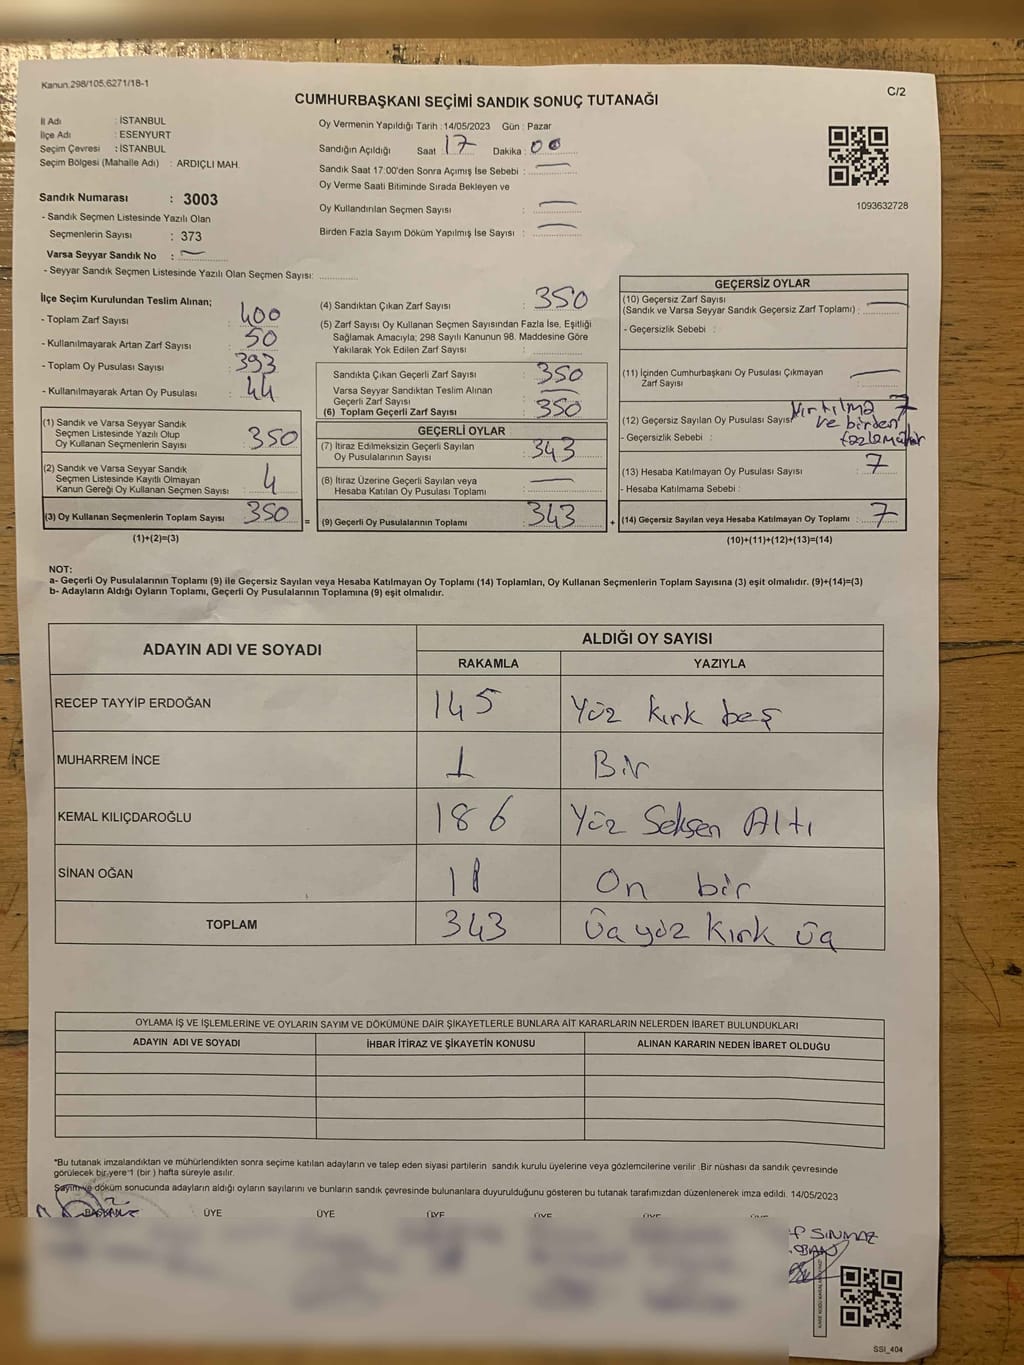 Kanun.298/105.6271/18-1
C/2
CUMHURBAŞKANI SEÇİMİ SANDIK SONUÇ TUTANAĞI
İl Adı : İSTANBUL
İlçe Adı : ESENYURT
Seçim Çevresi : İSTANBUL
Seçim Bölgesi (Mahalle Adı) : ARDIÇLI MAH.
Sandık Numarası : 3003
- Sandık Seçmen Listesinde Yazılı Olan
Seçmenlerin Sayısı : 373
Varsa Seyyar Sandık No : —
- Seyyar Sandık Seçmen Listesinde Yazılı Olan Seçmen Sayısı:
Oy Vermenin Yapıldığı Tarih : 14/05/2023 Gün : Pazar
Sandığın Açıldığı Saat 17 Dakika : 00
Sandık Saat 17:00'den Sonra Açımış İse Sebebi : —
Oy Verme Saati Bitiminde Sırada Bekleyen ve
Oy Kullandırılan Seçmen Sayısı : —
Birden Fazla Sayım Döküm Yapılmış İse Sayısı : —
1093632728
İlçe Seçim Kurulundan Teslim Alınan;
- Toplam Zarf Sayısı : 400
- Kullanılmayarak Artan Zarf Sayısı : 50
- Toplam Oy Pusulası Sayısı : 393
- Kullanılmayarak Artan Oy Pusulası : 44
(1) Sandık ve Varsa Seyyar Sandık
Seçmen Listesinde Yazılı Olup
Oy Kullanan Seçmenlerin Sayısı : 350
(2) Sandık ve Varsa Seyyar Sandık
Seçmen Listesinde Kayıtlı Olmayan
Kanun Gereği Oy Kullanan Seçmen Sayısı : 4
(3) Oy Kullanan Seçmenlerin Toplam Sayısı : 350
(1)+(2)=(3)
=
(4) Sandıktan Çıkan Zarf Sayısı : 350
(5) Zarf Sayısı Oy Kullanan Seçmen Sayısından Fazla İse, Eşitliği
Sağlamak Amacıyla; 298 Sayılı Kanunun 98. Maddesine Göre
Yakılarak Yok Edilen Zarf Sayısı :
Sandıkta Çıkan Geçerli Zarf Sayısı : 350
Varsa Seyyar Sandıktan Teslim Alınan
Geçerli Zarf Sayısı : —
(6) Toplam Geçerli Zarf Sayısı : 350
GEÇERLİ OYLAR
(7) İtiraz Edilmeksizin Geçerli Sayılan
Oy Pusulalarının Sayısı : 343
(8) İtiraz Üzerine Geçerli Sayılan veya
Hesaba Katılan Oy Pusulası Toplamı : —
(9) Geçerli Oy Pusulalarının Toplamı : 343
+
GEÇERSİZ OYLAR
(10) Geçersiz Zarf Sayısı
(Sandık ve Varsa Seyyar Sandık Geçersiz Zarf Toplamı) : —
- Geçersizlik Sebebi :
(11) İçinden Cumhurbaşkanı Oy Pusulası Çıkmayan
Zarf Sayısı : —
(12) Geçersiz Sayılan Oy Pusulası Sayısı 7
- Geçersizlik Sebebi : Yırtılma ve birden
(13) Hesaba Katılmayan Oy Pusulası Sayısı : 7
- Hesaba Katılmama Sebebi :
(14) Geçersiz Sayılan veya Hesaba Katılmayan Oy Toplamı : 7
(10)+(11)+(12)+(13)=(14)
NOT:
a- Geçerli Oy Pusulalarının Toplamı (9) ile Geçersiz Sayılan veya Hesaba Katılmayan Oy Toplamı (14) Toplamları, Oy Kullanan Seçmenlerin Toplam Sayısına (3) eşit olmalıdır. (9)+(14)=(3)
b- Adayların Aldığı Oyların Toplamı, Geçerli Oy Pusulalarının Toplamına (9) eşit olmalıdır.
ADAYIN ADI VE SOYADI
ALDIĞI OY SAYISI
RAKAMLA YAZIYLA
RECEP TAYYİP ERDOĞAN 145 Yüz kırk beş
MUHARREM İNCE 1 Bir
KEMAL KILIÇDAROĞLU 186 Yüz Seksen Altı
SİNAN OĞAN 11 On bir
TOPLAM 343 Üç yüz kırk üç
OYLAMA İŞ VE İŞLEMLERİNE VE OYLARIN SAYIM VE DÖKÜMÜNE DAİR ŞİKAYETLERLE BUNLARA AİT KARARLARIN NELERDEN İBARET BULUNDUKLARI
ADAYIN ADI VE SOYADI İHBAR İTİRAZ VE ŞİKAYETİN KONUSU ALINAN KARARIN NEDEN İBARET OLDUĞU
*Bu tutanak imzalandıktan ve mühürlendikten sonra seçime katılan adayların ve talep eden siyasi partilerin sandık kurulu üyelerine veya gözlemcilerine verilir. Bir nüshası da sandık çevresinde
görülecek bir yere 1 (bir ) hafta süreyle asılır.
Sayım ve döküm sonucunda adayların aldığı oyların sayılarını ve bunların sandık çevresinde bulunanlara duyurulduğunu gösteren bu tutanak tarafımızdan düzenlenerek imza edildi. 14/05/2023
BAŞKAN ÜYE ÜYE ÜYE ÜYE ÜYE ÜYE
SINMAZ
SSI_404